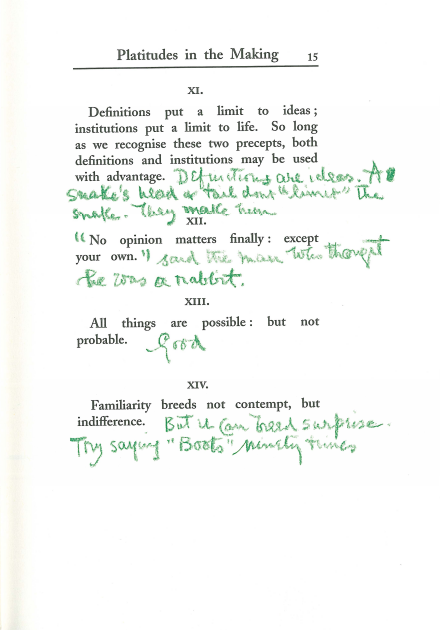 Platitudes in the Making 15
XI.
Definitions put a limit to ideas;
institutions put a limit to life. So long
as we recognise these two precepts, both
definitions and institutions may be used
with advantage. Definitions are ideas. A
snake's head or tail dont "limit" the
snake. They make him
XII.
"No opinion matters finally: except
your own." said the man who thought
he was a rabbit.
XIII.
All things are possible: but not
probable. Good
XIV.
Familiarity breeds not contempt, but
indifference. But it can breed surprise.
Try saying "Boots" ninety times